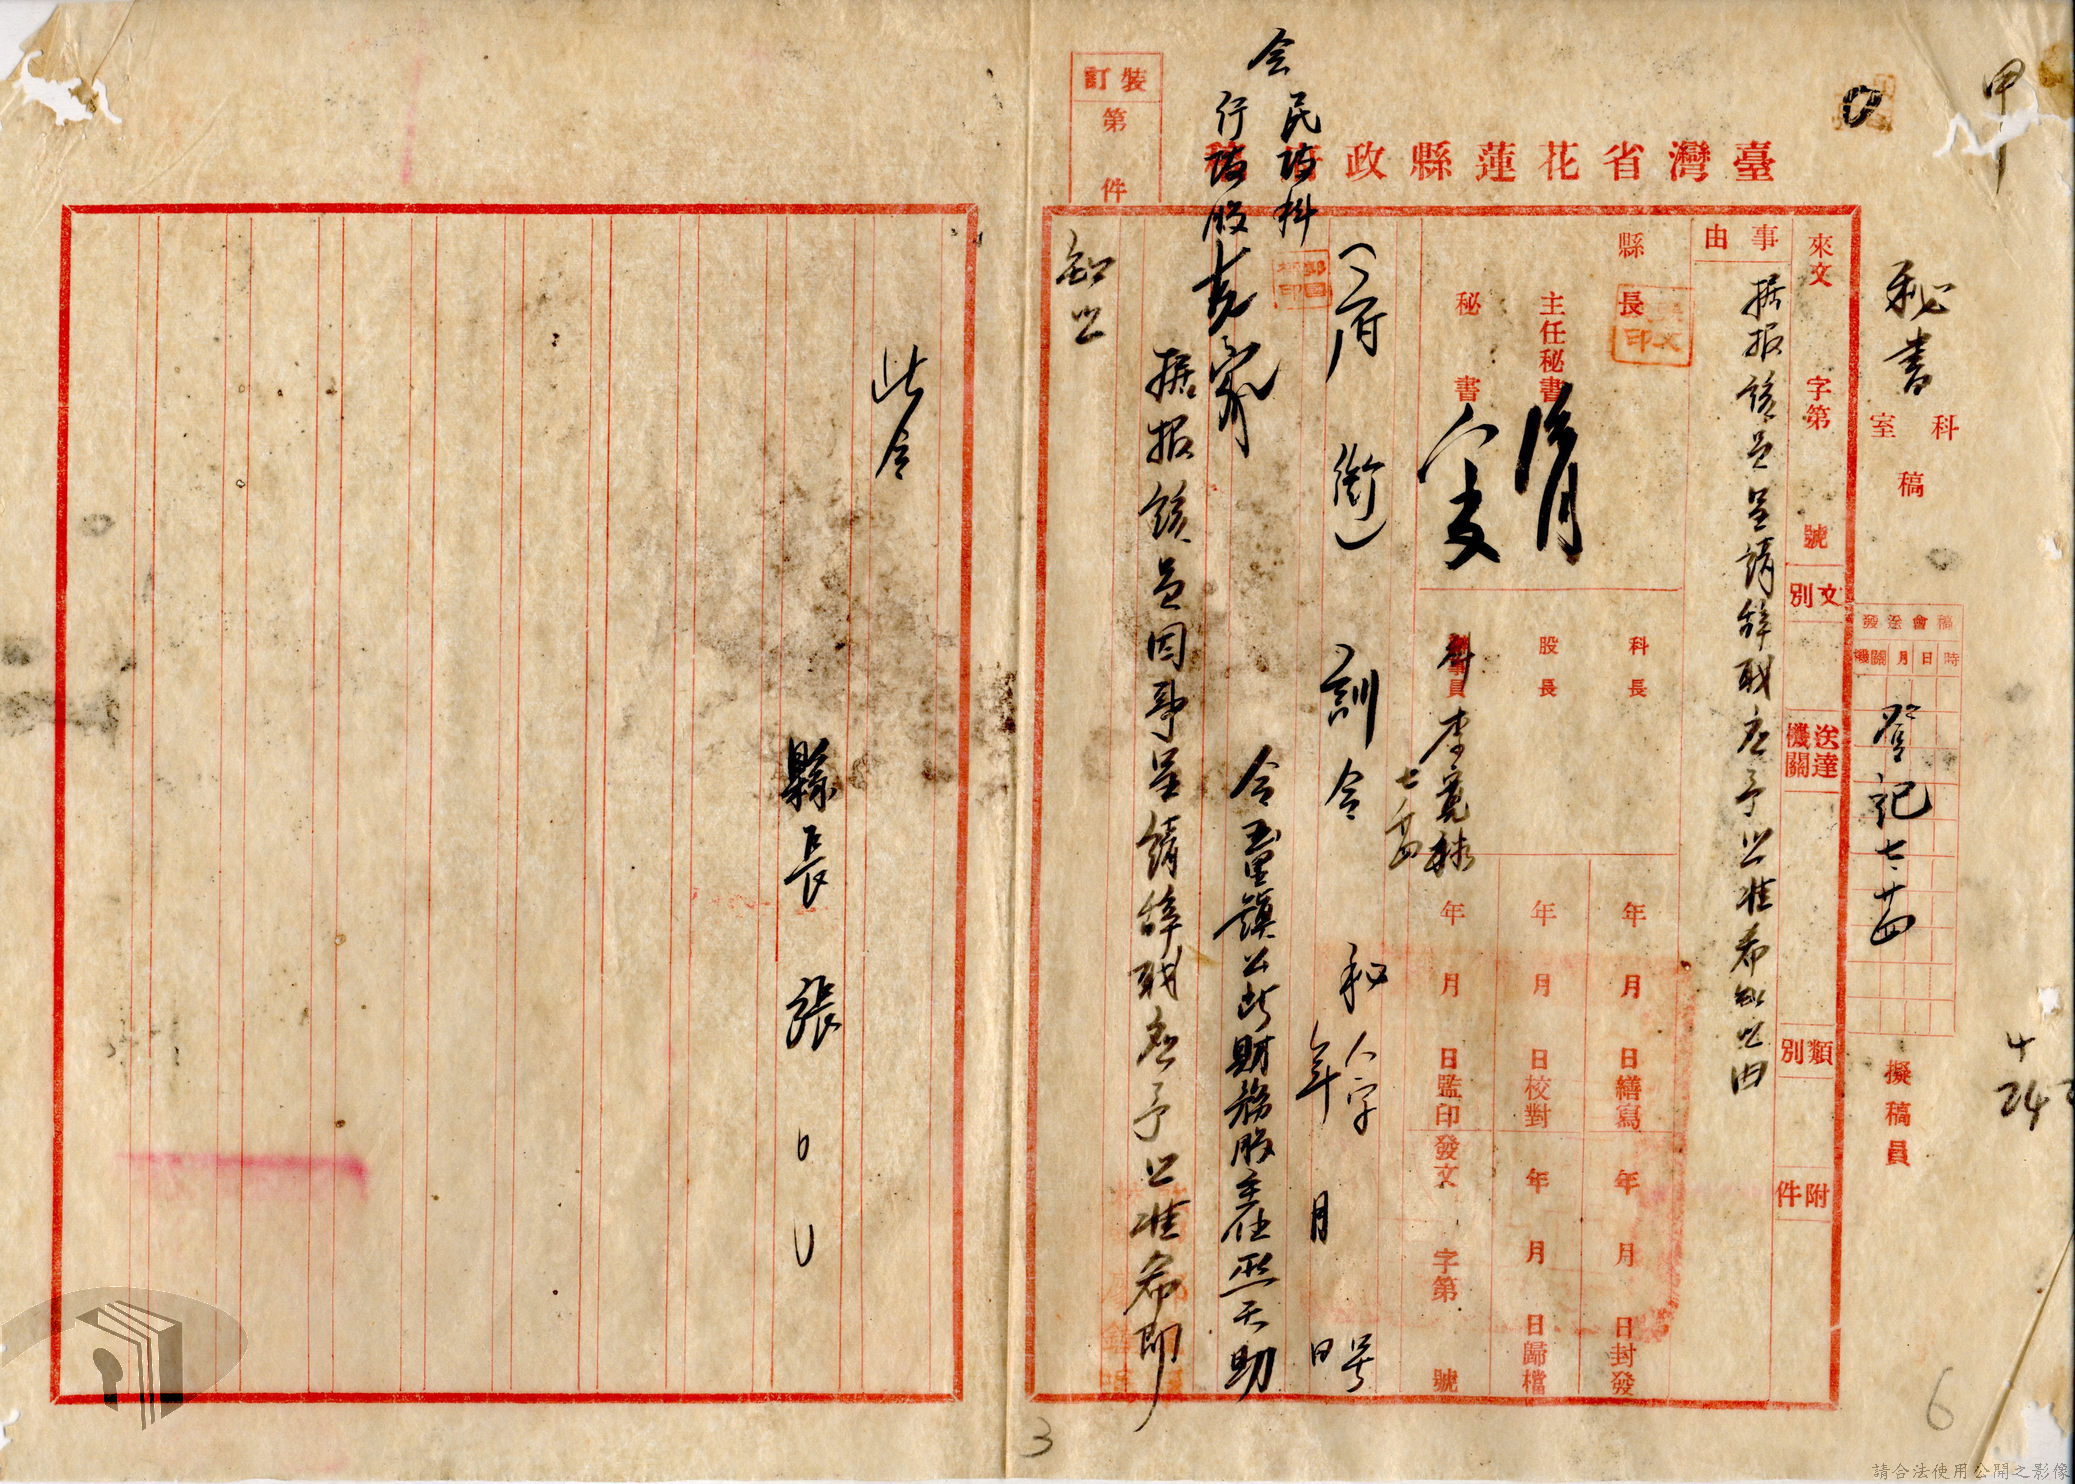 甲
臺灣省花蓮縣政府稿
裝訂
第
件
秘書
科室
稿
稿會送發
時日月機關
登記 七、廿四
擬稿員
來文
字第
號
文別
送達機關
類別
附件
事由
据报該員呈請辞职应予照准希知照由
縣長
主任秘書
秘書
科長
股長
科員 李
七、廿四
年 月 日繕寫
年 月 日校對
年 月 日監印
年 月 日封發
年 月 日歸檔
發文 字第 號
(府銜)訓令 秘人字 号
年 月 日
会 民政科
行政股
令玉里鎮公所財務股主任巫天助
据报該員因事呈請辞职应予照准希即
知照
此令
縣長 張○○
4
24
3
6
請合法使用公開之影像